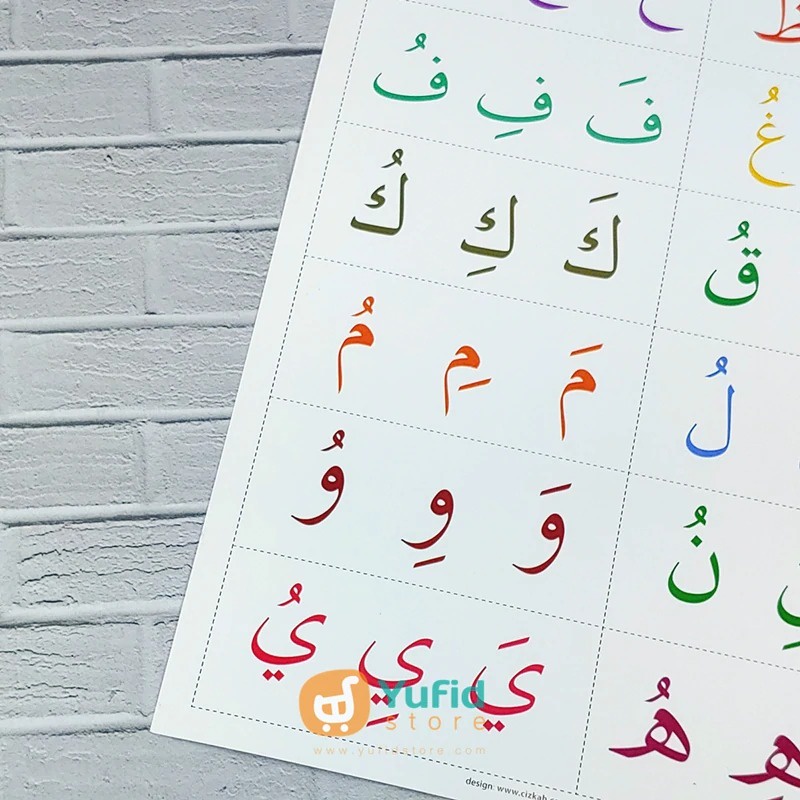 غُ فَ فِ فُ
قُ كَ كِ كُ
لُ مَ مِ مُ
نُ وَ وِ وُ
هُ يَ يِ يُ
Yufid
store
www.yufidstore.com
design: www.cizkah